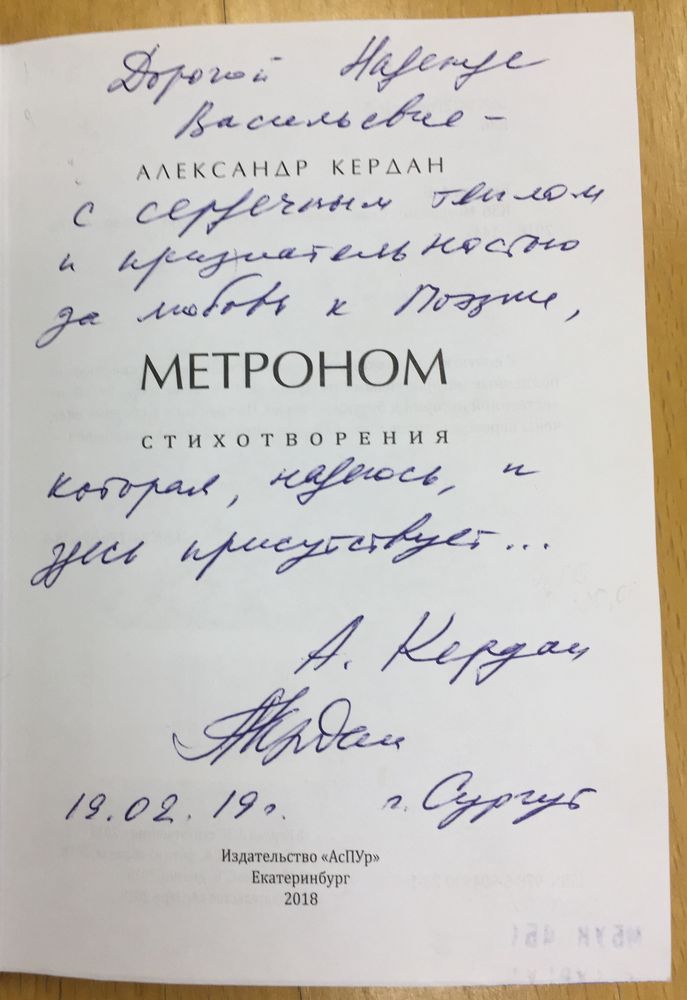 Дорогой Надежде
Васильевне –
АЛЕКСАНДР КЕРДАН
с сердечным теплом
и признательностью
за любовь к Поэзии,
МЕТРОНОМ
СТИХОТВОРЕНИЯ
которая, надеюсь, и
здесь присутствует...
А. Кердан
АКердан
19.02.19г. г. Сургут
Издательство «АсПУр»
Екатеринбург
2018